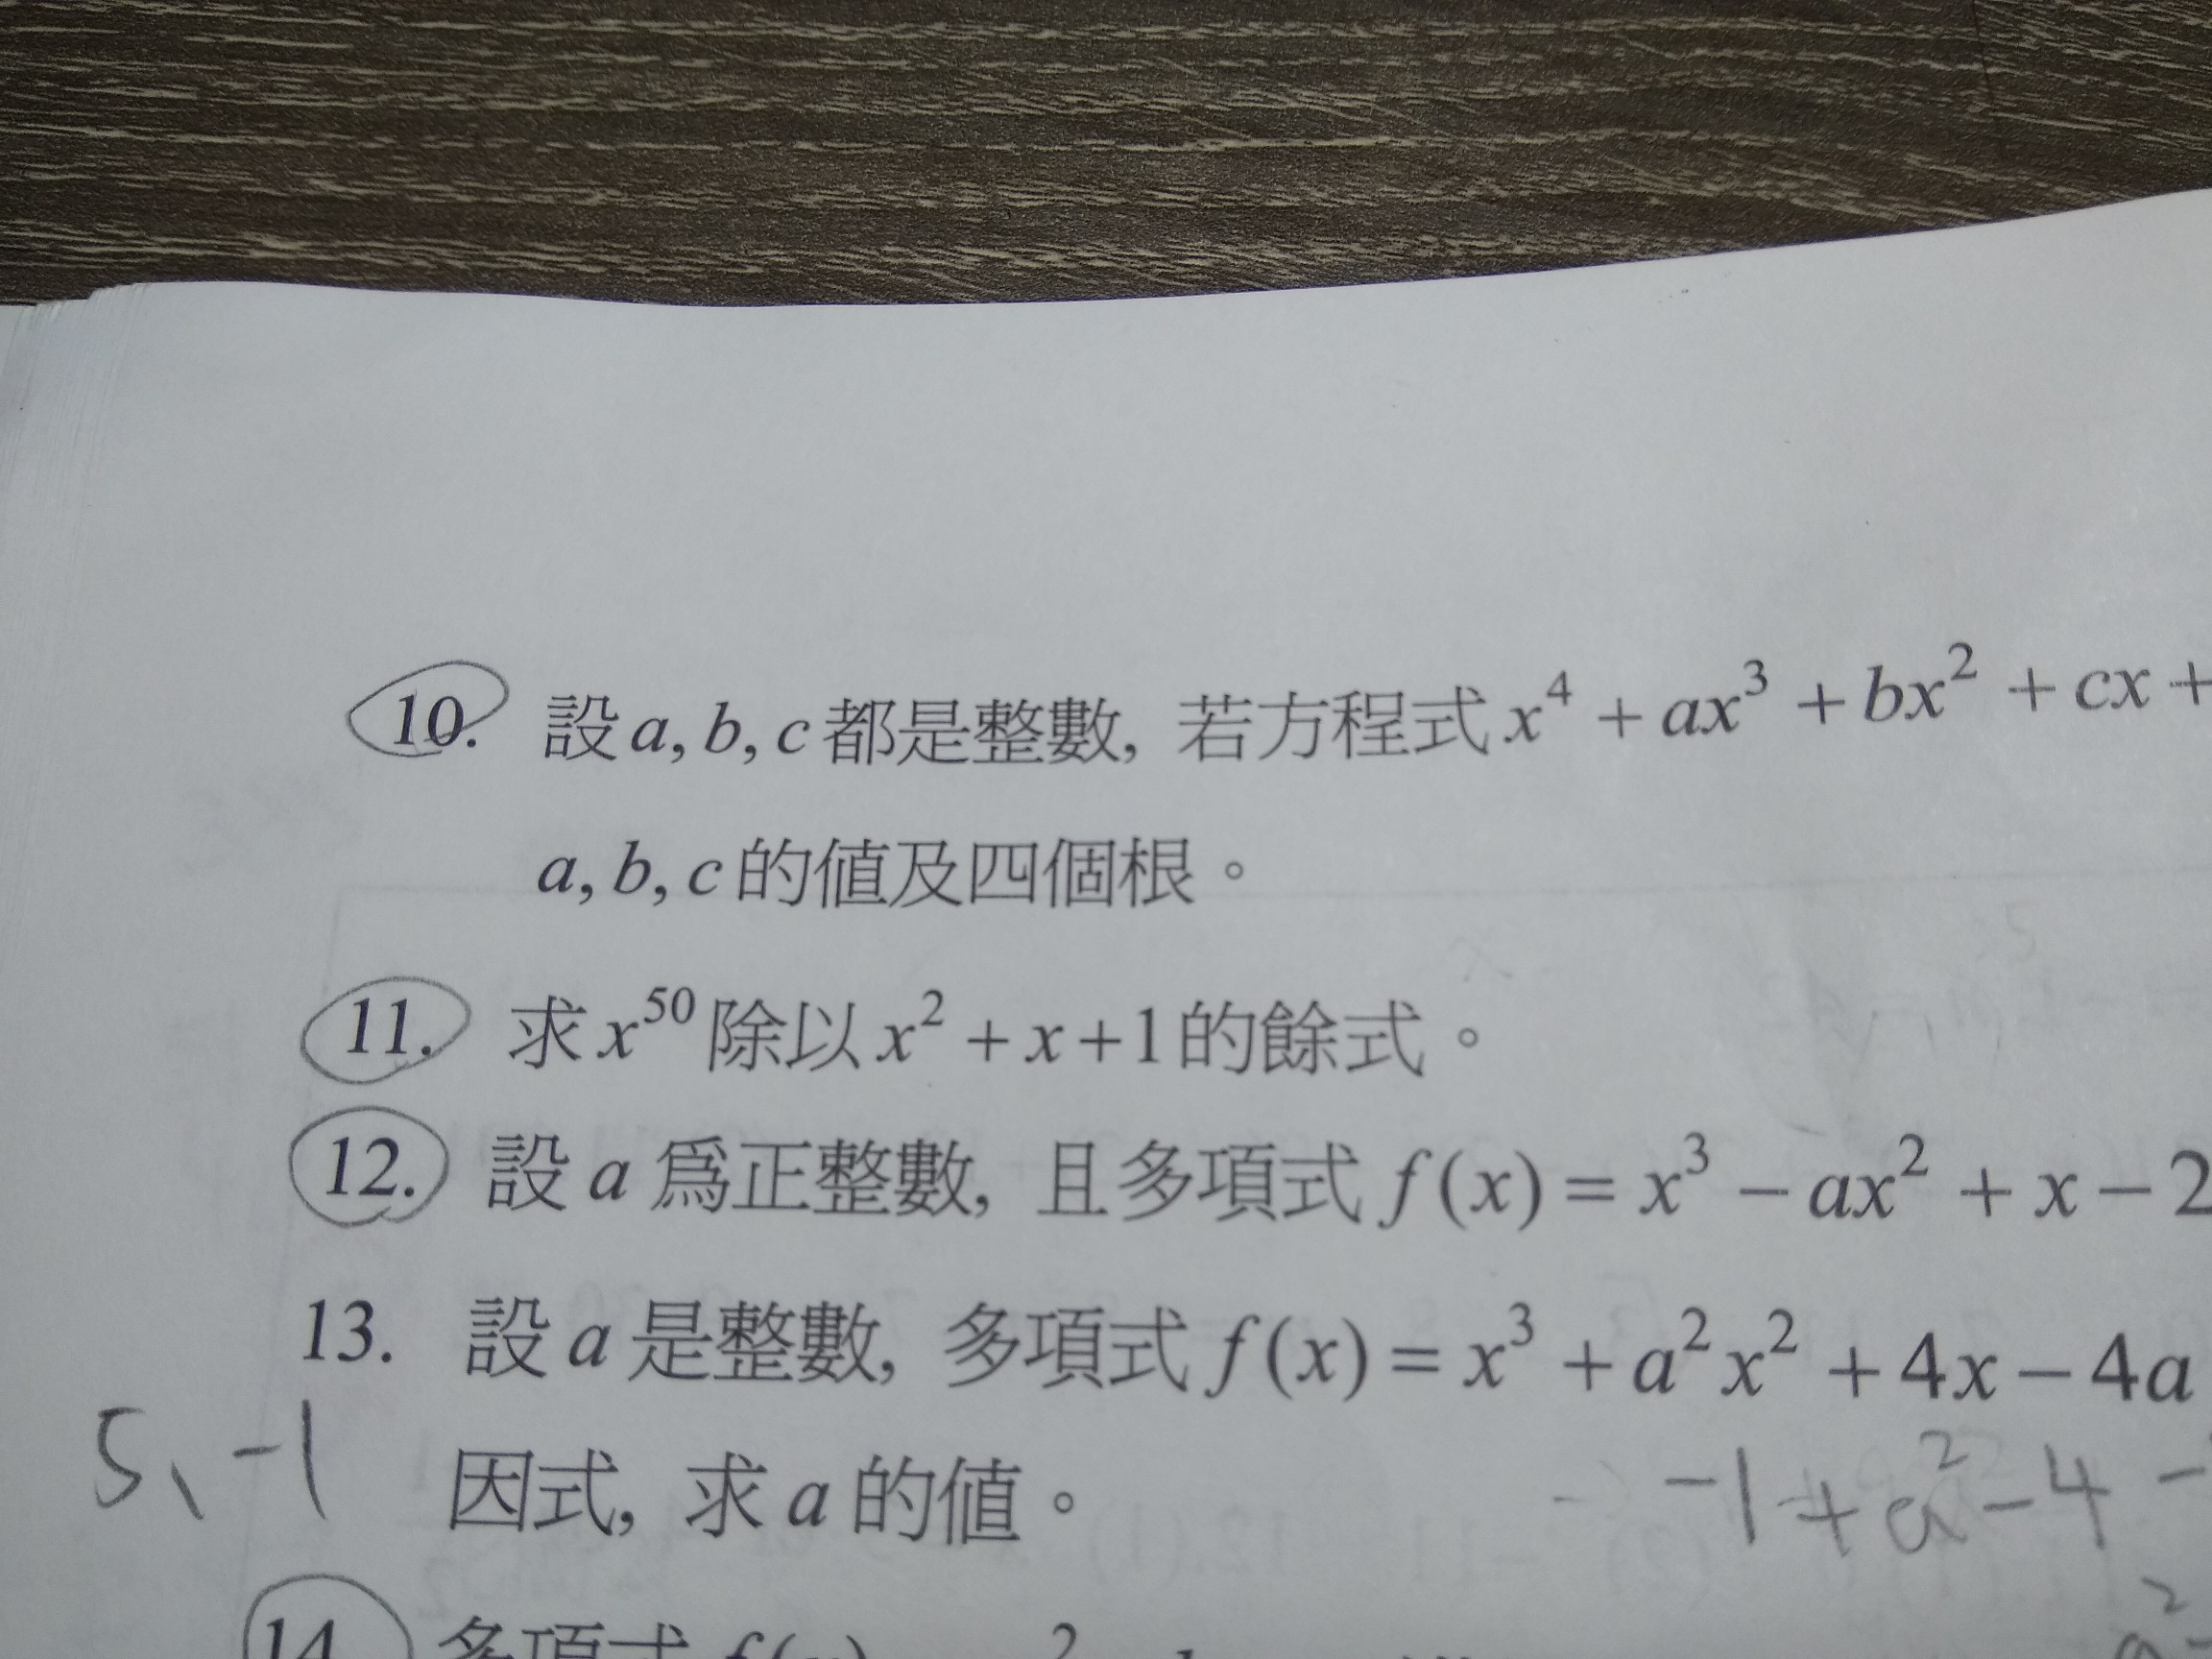 10. 設 a, b, c 都是整數, 若方程式 x⁴ + ax³ + bx² + cx +
a, b, c 的值及四個根。
11. 求 x⁵⁰ 除以 x² + x + 1 的餘式。
12. 設 a 爲正整數, 且多項式 f(x) = x³ − ax² + x − 2
13. 設 a 是整數, 多項式 f(x) = x³ + a²x² + 4x − 4a
5、-1
因式, 求 a 的值。
-1 + a² - 4 -
14. 多項式